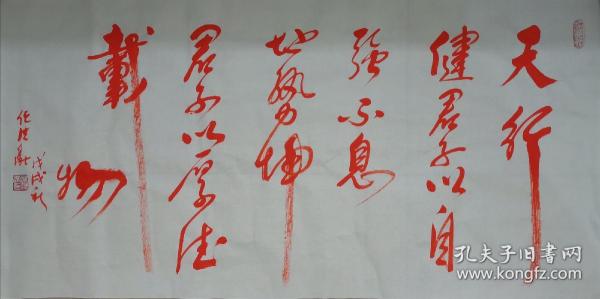 天行
健君子以自
强不息
地势坤
君子以厚德
载
物
戊戌秋
孔夫子旧书网
www.kongfz.com